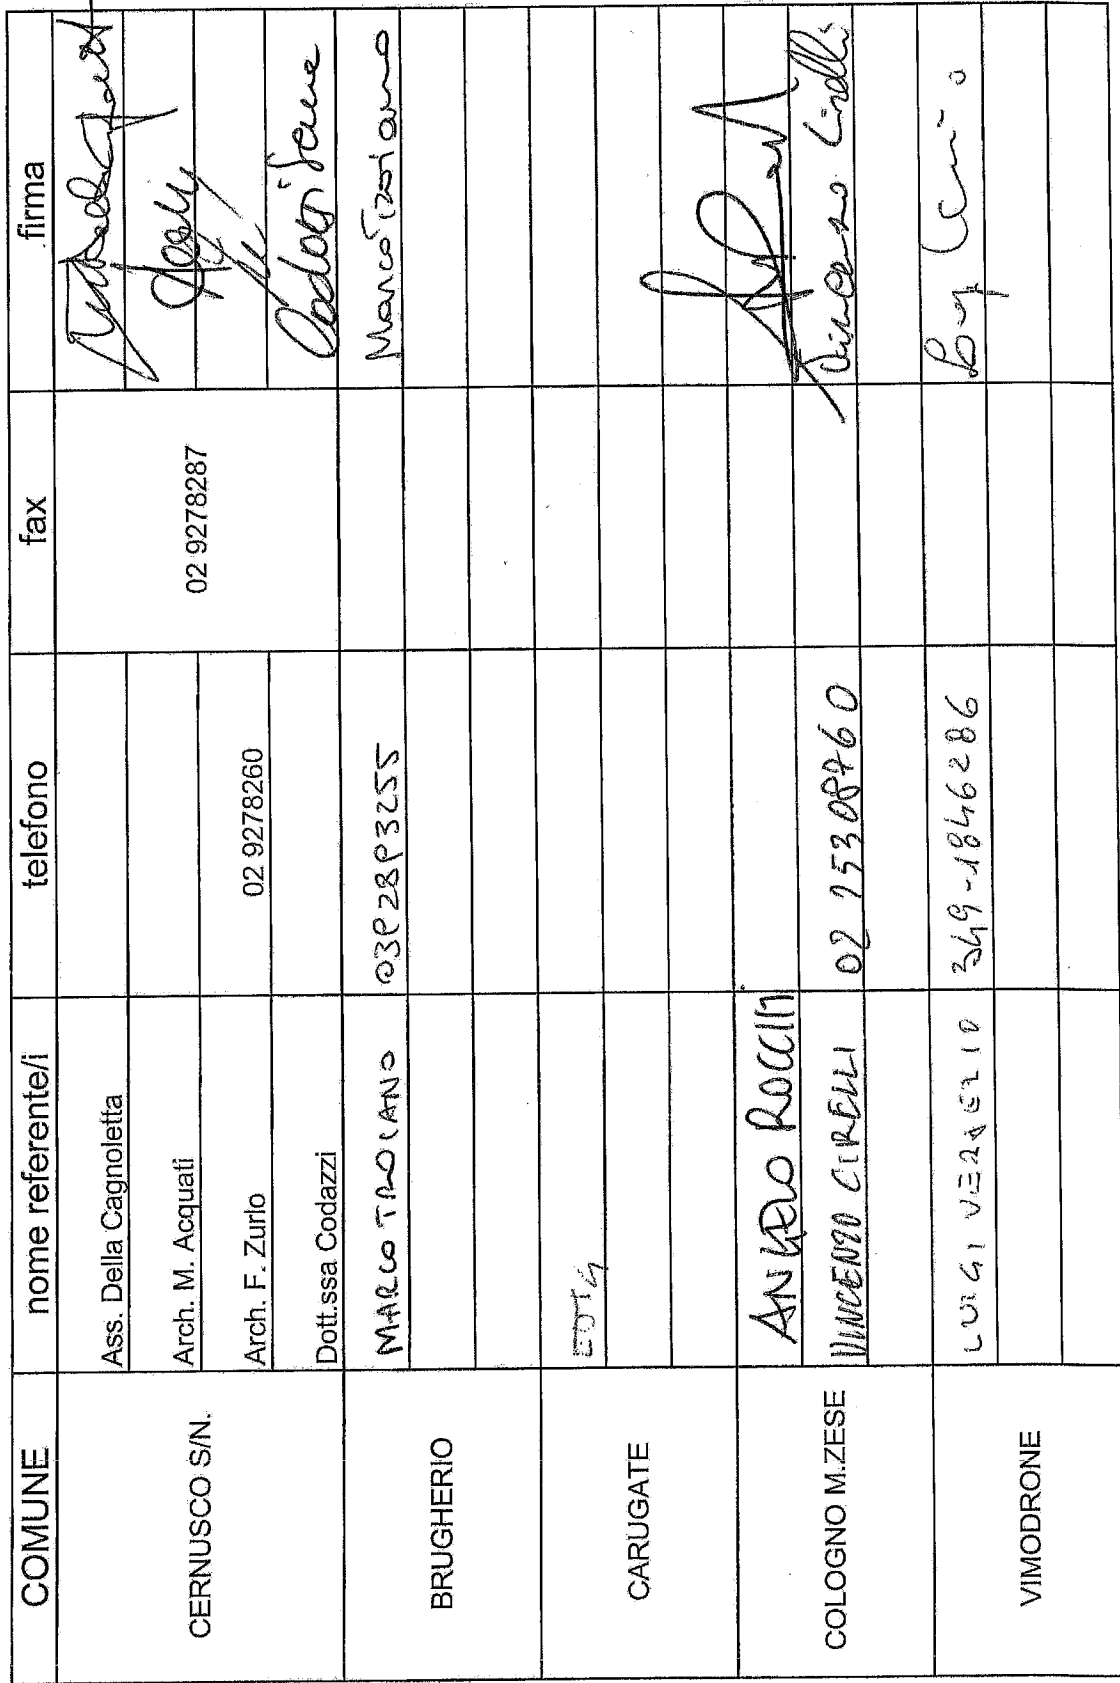 COMUNE nome referente/i telefono fax firma
CERNUSCO S/N.
Ass. Della Cagnoletta
Arch. M. Acquati
Arch. F. Zurlo 02 9278260 02 9278287
Dott.ssa Codazzi
BRUGHERIO MARCO TROIANO Marco Troiano
CARUGATE
COLOGNO M.ZESE
ANGELO ROCCHI
VINCENZO CIRELLI 02 25308760 Vincenzo Cirelli
VIMODRONE
LUIGI VERDERIO 349-1846286